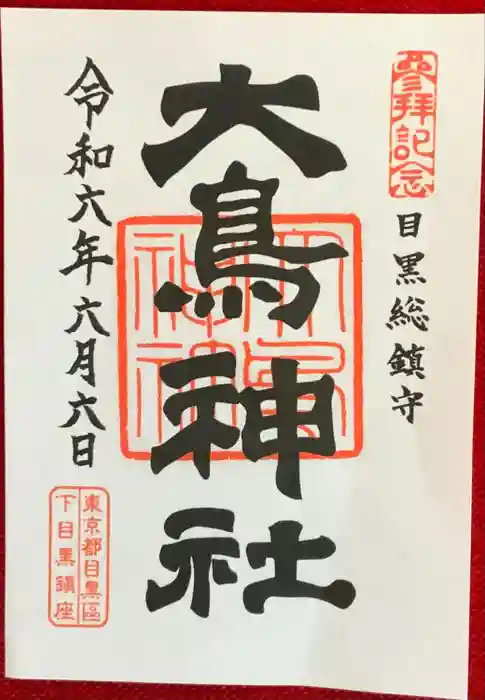 參拝記念
目黒総鎮守
大鳥神社
大鳥神社
令和六年六月六日
東京都目黒區
下目黒鎮座